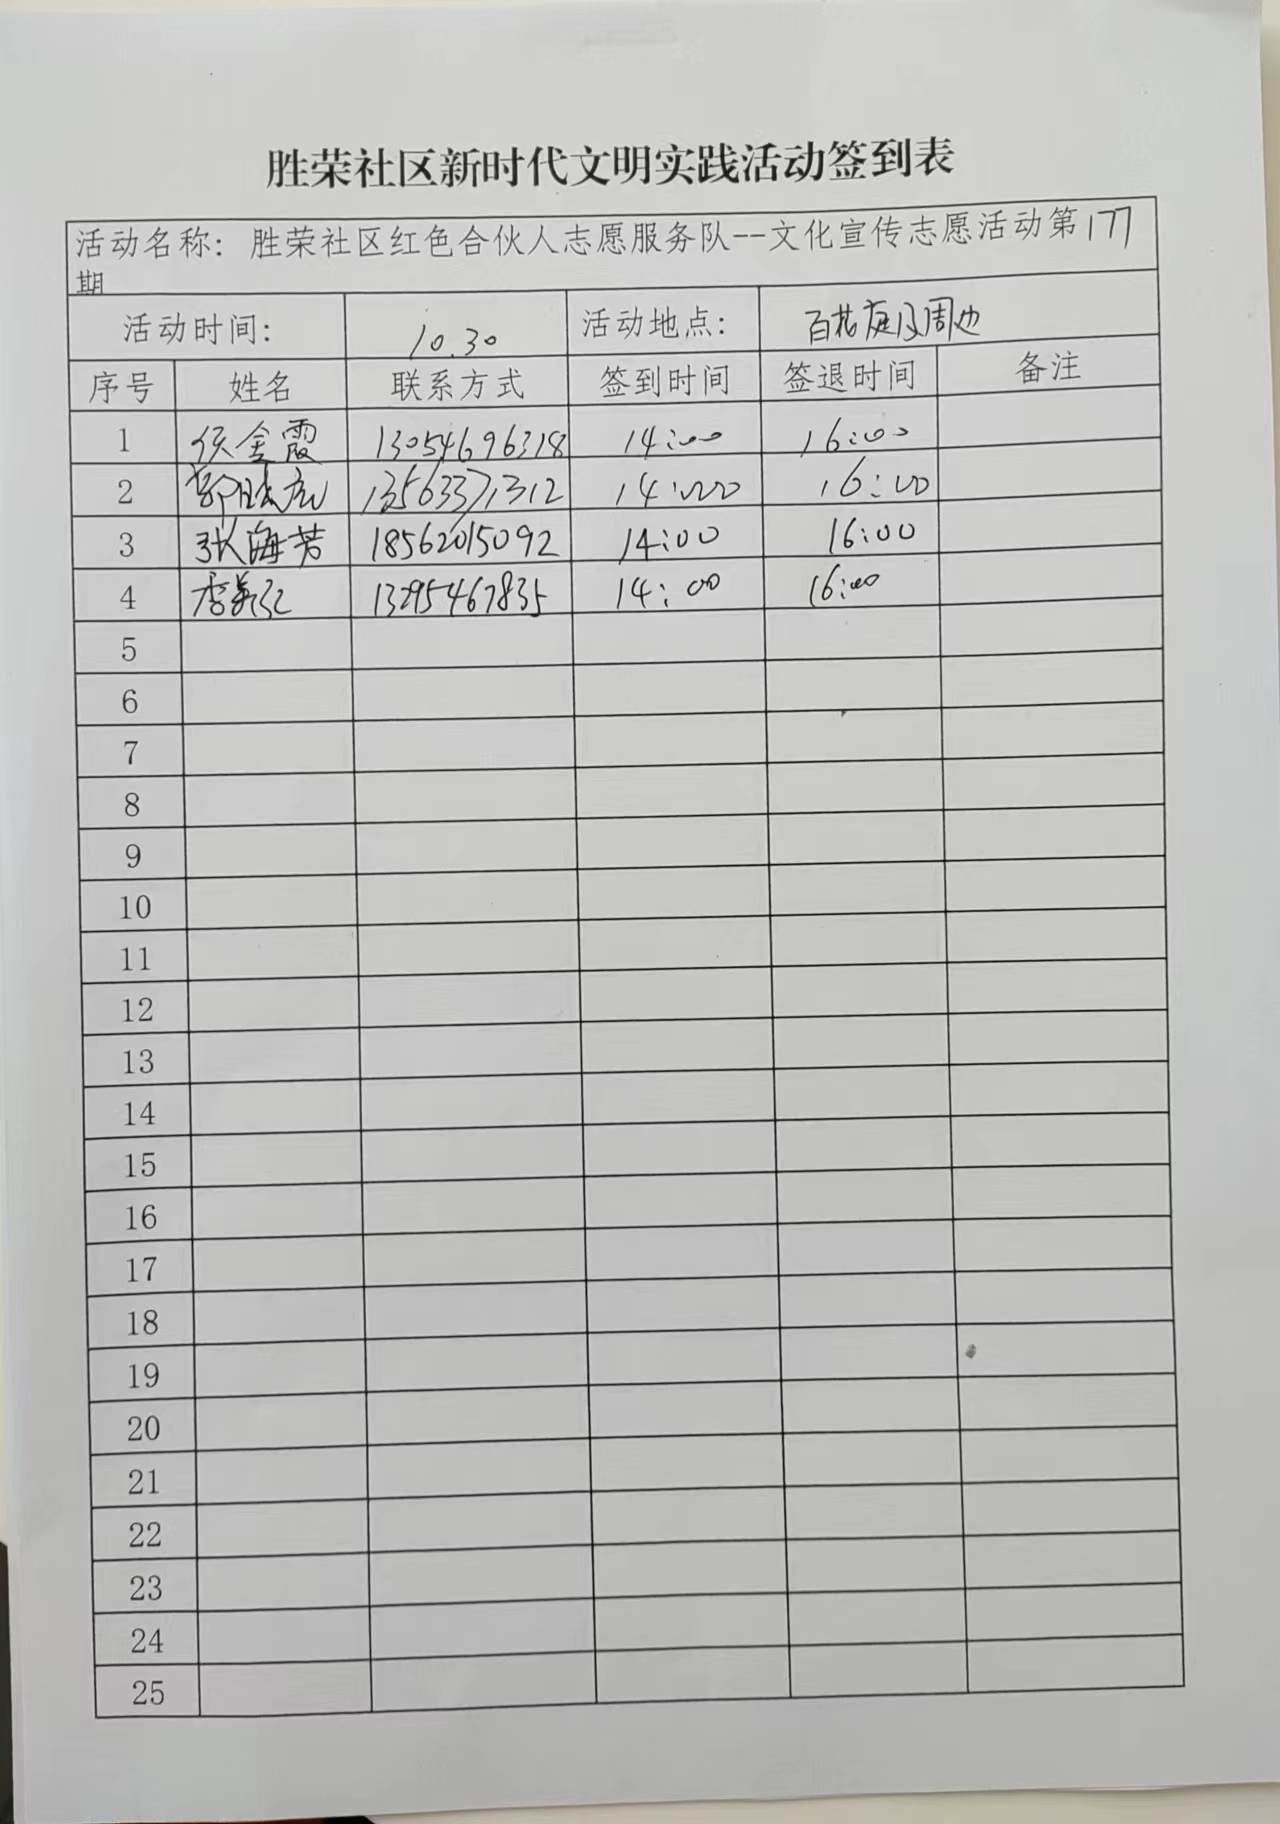 胜荣社区新时代文明实践活动签到表
活动名称：胜荣社区红色合伙人志愿服务队--文化宣传志愿活动第177
期
活动时间： 10.30 活动地点： 百花庭及周边
序号 姓名 联系方式 签到时间 签退时间 备注
1 侯金霞 13054696318 14:00 16:00
2 13563371312 14:00 16:00
3 张海芳 18562015092 14:00 16:00
4 李美红 13295467835 14:00 16:00
5
6
7
8
9
10
11
12
13
14
15
16
17
18
19
20
21
22
23
24
25